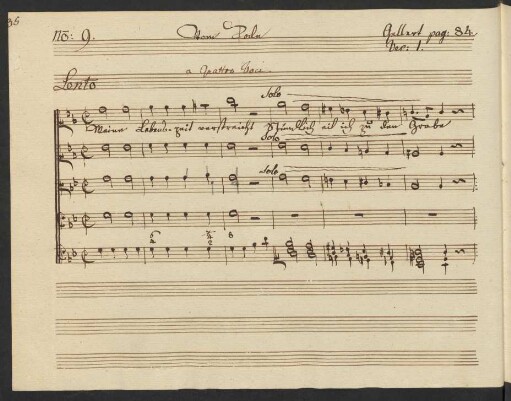 36
No: 9. Vom Tode Gellert pag: 84.
Ver: 1.
a quattro Voci
Lento
Solo
Meine Lebenszeit verstreicht Stündlich eil ich zu dem Grabe
Solo
Solo
5 4 8